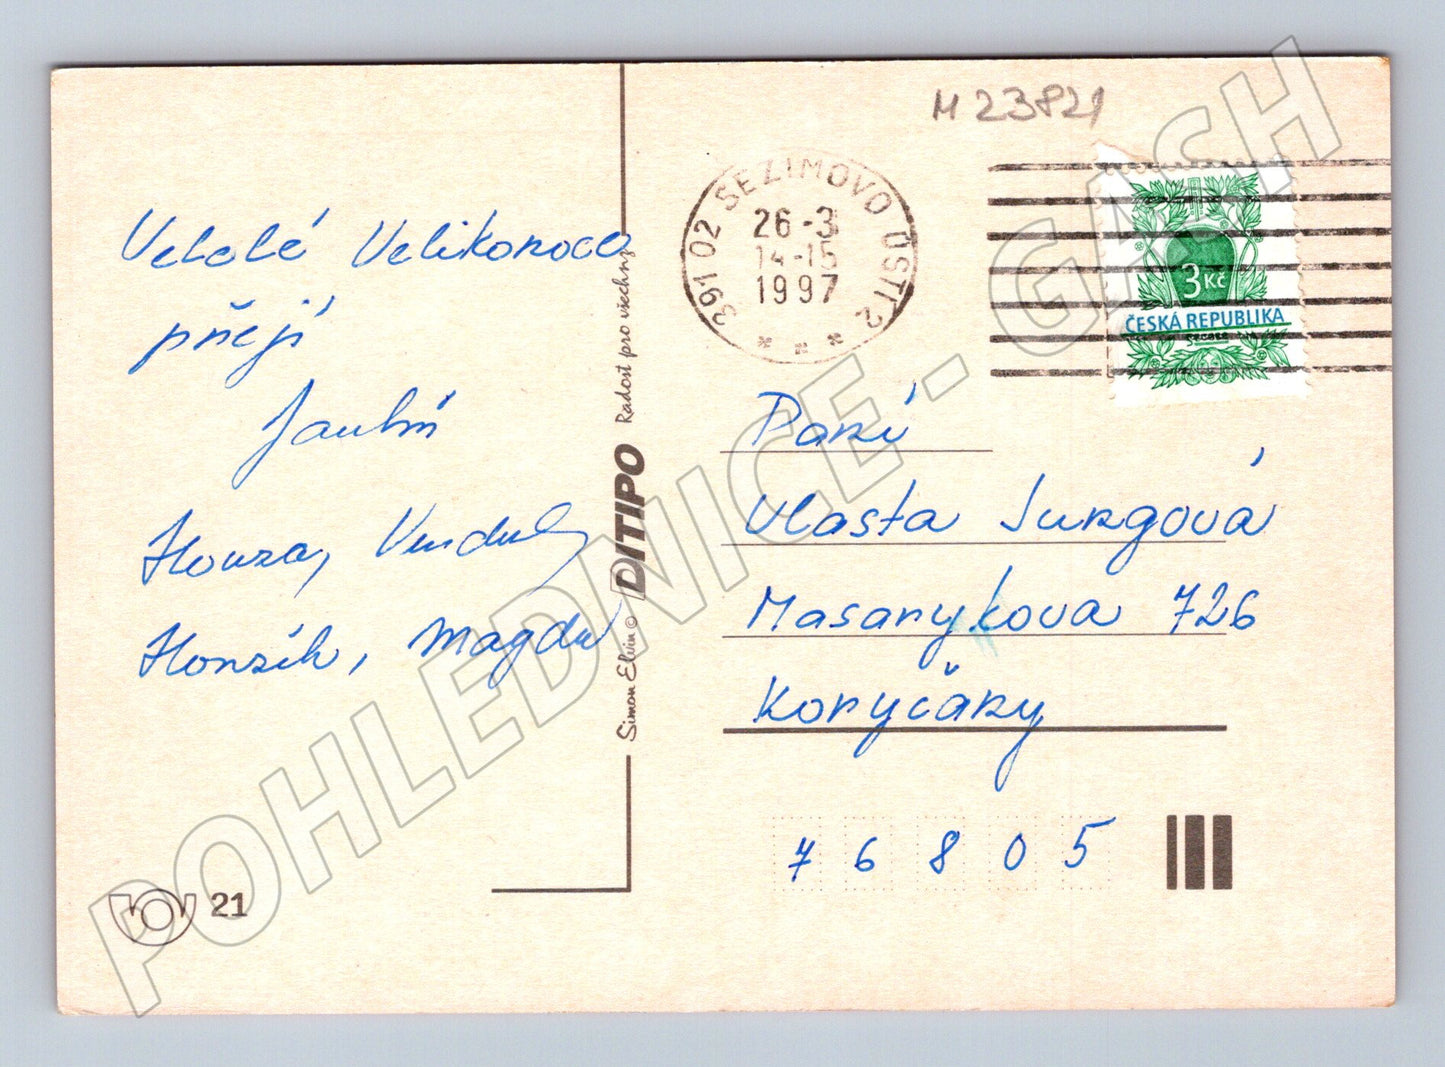 M 23821
391 02 SEZIMOVO ÚSTÍ 2
26 -3
14-15
1997
3 Kč
ČESKÁ REPUBLIKA
Secese
Veselé Velikonoce
přejí
Honza,
Honzík, Magda
Simon Elvin © DITIPO Radost pro všechny
Paní
Vlasta Jurgová
Masarykova 726
Koryčany
76805
21
POHLEDNICE - GASH